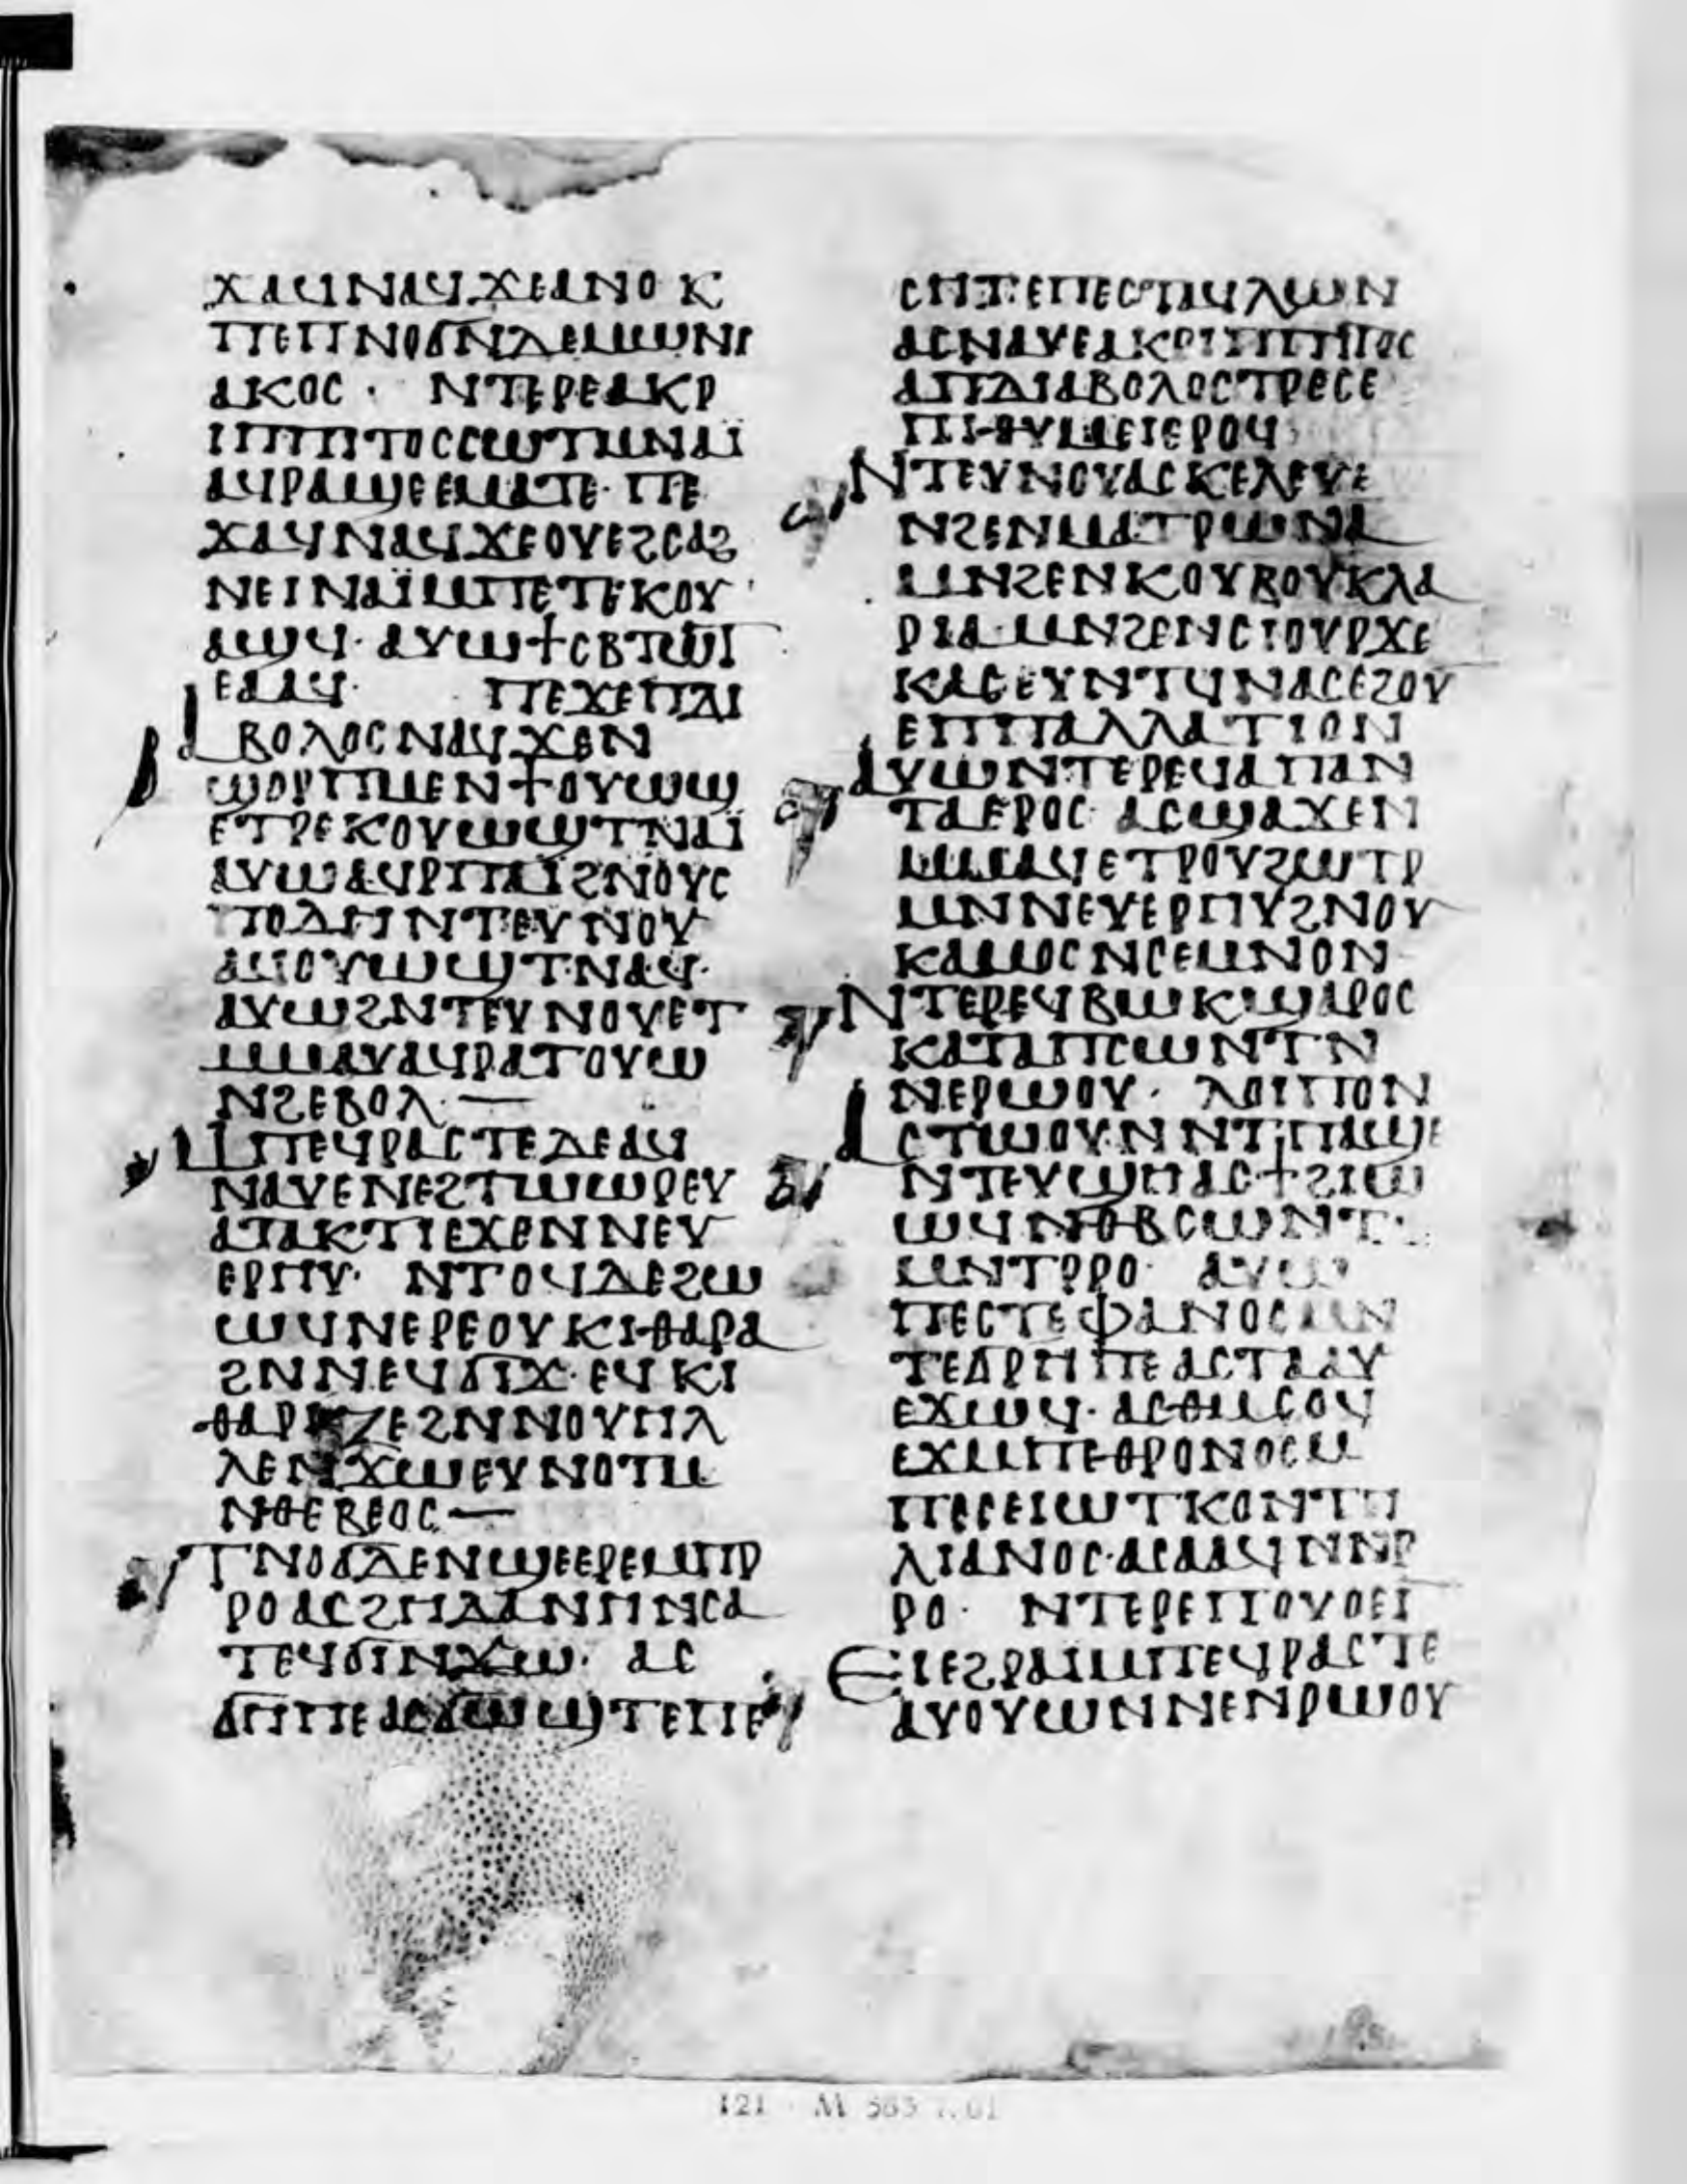 ϫⲁϥⲛⲁϥϫⲉⲁⲛⲟⲕ
ⲡⲉⲡⲛⲟϭⲛⲇⲉⲙⲱⲛⲓ
ⲁⲕⲟⲥ · ⲛⲧⲉⲣⲉⲁⲕⲣ
ⲓⲡⲡⲓⲧⲟⲥⲥⲱⲧⲙⲛⲁⲓ̈
ⲁϥⲣⲁϣⲉⲉⲙⲁⲧⲉ· ⲡⲉ
ϫⲁϥⲛⲁϥϫⲉⲟⲩⲉϩⲥⲁϩ
ⲛⲉⲓⲛⲁⲓ̈ⲙⲡⲉⲧⲉⲕⲟⲩ
ⲁϣϥ· ⲁⲩⲱϯⲥⲃⲧⲱⲧ
ⲉⲁⲁϥ· ⲡⲉϫⲉⲡⲇⲓ
ⲁⲃⲟⲗⲟⲥⲛⲁϥϫⲉⲛ
ϣⲟⲣⲡⲙⲉⲛϯⲟⲩⲱϣ
ⲉⲧⲣⲉⲕⲟⲩⲱϣⲧⲛⲁⲓ̈
ⲁⲩⲱⲁϥⲣⲡⲁⲓ̈ϩⲛⲟⲩⲥ
ⲡⲟⲇⲏⲛⲧⲉⲩⲛⲟⲩ
ⲁϥⲟⲩⲱϣⲧⲛⲁϥ·
ⲁⲩⲱϩⲛⲧⲉⲩⲛⲟⲩⲉⲧ
ⲙⲙⲁⲩⲁϥⲣⲁⲧⲟⲩⲱ
ⲛϩⲉⲃⲟⲗ·—
ⲙⲡⲉϥⲣⲁⲥⲧⲉⲇⲉⲁϥ
ⲛⲁⲩⲉⲛⲉϩⲧⲱⲱⲣⲉⲩ
ⲁⲧⲁⲕⲧⲓⲉϫⲉⲛⲛⲉⲩ
ⲉⲣⲏⲩ· ⲛⲧⲟϥⲇⲉϩⲱ
ⲱϥⲛⲉⲣⲉⲟⲩⲕⲓⲑⲁⲣⲁ
ϩⲛⲛⲉϥϭⲓϫ· ⲉϥⲕⲓ
ⲑⲁⲣⲓⲍⲉϩⲛⲛⲟⲩⲡⲗ
ⲗⲉⲛϫⲱⲉⲩⲛⲟⲧⲙ
ⲛⲑⲉⲃⲉⲟⲥ—
ⲧⲛⲟϭⲇⲉⲛϣⲉⲉⲣⲉⲙⲡⲣ
ⲣⲟⲁⲥϩⲏⲇⲁⲛⲏⲛⲥⲁ
ⲧⲉϥϭⲓⲛϫⲱ· ⲁⲥ
ϭⲏⲡⲉⲁⲥϭⲱϣⲧⲉⲡⲉ
ⲥⲏⲧ·ⲉⲡⲉⲥⲡⲩⲗⲱⲛ
ⲁⲥⲛⲁⲩⲉⲁⲕⲣⲓⲡⲡⲓⲧⲟⲥ
ⲁⲡⲇⲓⲁⲃⲟⲗⲟⲥⲧⲣⲉⲥⲉ
ⲡⲓⲑⲩⲙⲉⲓⲉⲣⲟϥ
ⲛⲧⲉⲩⲛⲟⲩⲁⲥⲕⲉⲗⲉⲩⲉ
ⲛϩⲉⲛⲙⲁⲧⲣⲱⲛⲁ
ⲙⲛϩⲉⲛⲕⲟⲩⲃⲟⲩⲕⲗⲁ
ⲣⲓⲁ·ⲙⲛϩⲉⲛⲥⲓⲟⲩⲣϫⲉ
ⲕⲁⲥⲉⲩⲛⲧϥⲛⲁⲥⲉϩⲟⲩ
ⲉⲡⲡⲁⲗⲗⲁⲧⲓⲟⲛ
ⲁⲩⲱⲛⲧⲉⲣⲉϥⲁⲡⲁⲛ
ⲧⲁⲉⲣⲟⲥ· ⲁⲥϣⲁϫⲉⲛ
ⲙⲙⲁϥⲉⲧⲣⲟⲩϩⲱⲧⲣ
ⲙⲛⲛⲉⲩⲉⲣⲏⲩϩⲛⲟⲩ
ⲕⲁⲙⲟⲥⲛⲥⲉⲙⲛⲟⲛ
ⲛⲧⲉⲣⲉϥⲃⲱⲕϣⲁⲣⲟⲥ
ⲕⲁⲧⲁⲡⲥⲱⲛⲧⲛ
ⲛⲉⲣⲱⲟⲩ· ⲗⲟⲓⲡⲟⲛ
ⲁⲥⲧⲱⲟⲩⲛⲛⲧⲡⲁϣⲉ
ⲛⲧⲉⲩϣⲏⲁⲥϯϩⲓⲱ
ⲱϥⲛⲑⲃⲥⲱⲛⲧ·
ⲙⲛⲧⲣⲣⲟ· ⲁⲩⲱ
ⲡⲉⲥⲧⲉⲫⲁⲛⲟⲥⲙⲛ
ⲧⲉϭⲣⲏⲡⲉⲁⲥⲧⲁⲁⲩ
ⲉϫⲱϥ· ⲁⲥⲑⲙⲥⲟϥ
ⲉϫⲙⲡⲉⲑⲣⲟⲛⲟⲥⲙ
ⲡⲉⲥⲉⲓⲱⲧⲕⲟⲛⲧⲏ
ⲗⲓⲁⲛⲟⲥ·ⲁⲥⲁⲁϥⲛⲛⲣ
ⲣⲟ· ⲛⲧⲉⲣⲉⲡⲟⲩⲟⲉⲓ
ⲉⲓⲉϩⲣⲁⲓⲙⲡⲉϥⲣⲁⲥⲧⲉ
ⲁⲩⲟⲩⲱⲛⲛⲉⲛⲣⲱⲟⲩ